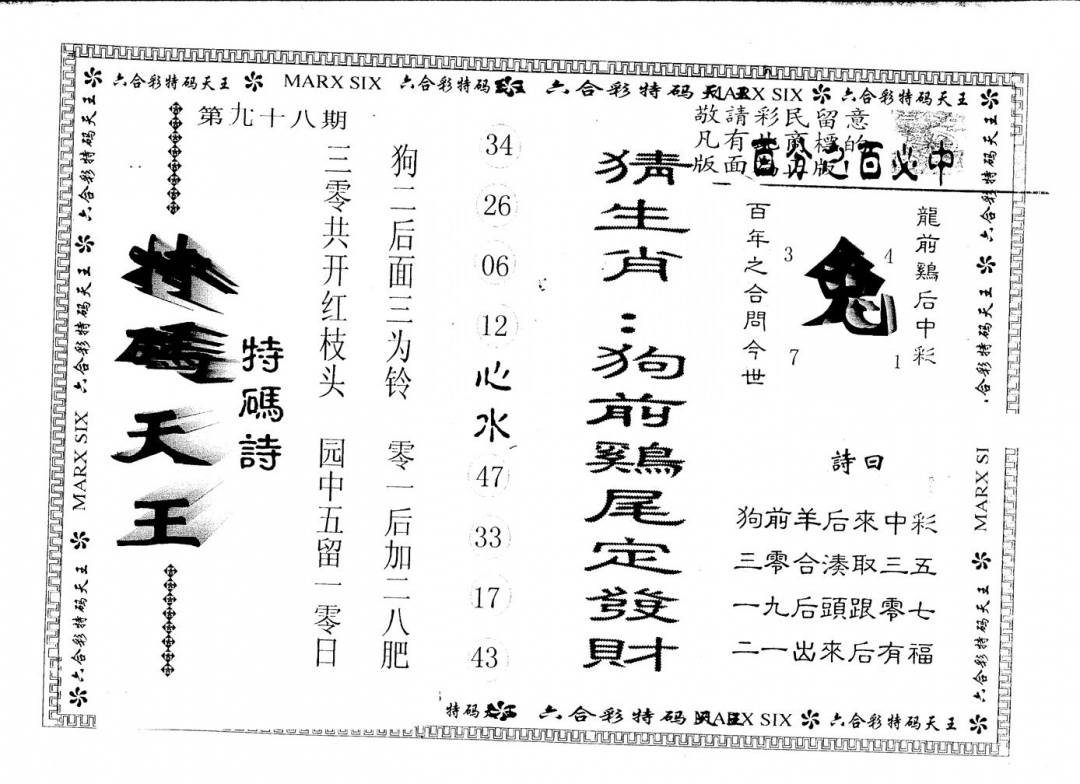 六合彩特码天王 MARX SIX 六合彩特码 六合彩特码 MARX SIX 六合彩特码天王
第九十八期
特碼天王
特碼詩
狗二后面三为铃 零一后加二八肥
三零共开红枝头 园中五留一零日
34
26
06
12
心水
47
33
17
43
猜生肖:狗前鷄尾定發財
敬請彩民留意
凡有
版面
百分之百必中
龍前鷄后中彩
4
兔
3
1
7
百年之合問今世
詩曰
狗前羊后來中彩
三零合湊取三五
一九后頭跟零七
二一出來后有福
六合彩特码天王
六合彩特码天王
MARX SIX
六合彩特码天王
六合彩特码天王
六合彩特码天王
合彩特码天王
MARX SI
六合彩特码天王
六合彩特码天王
特码 六合彩特码 MARX SIX 六合彩特码天王